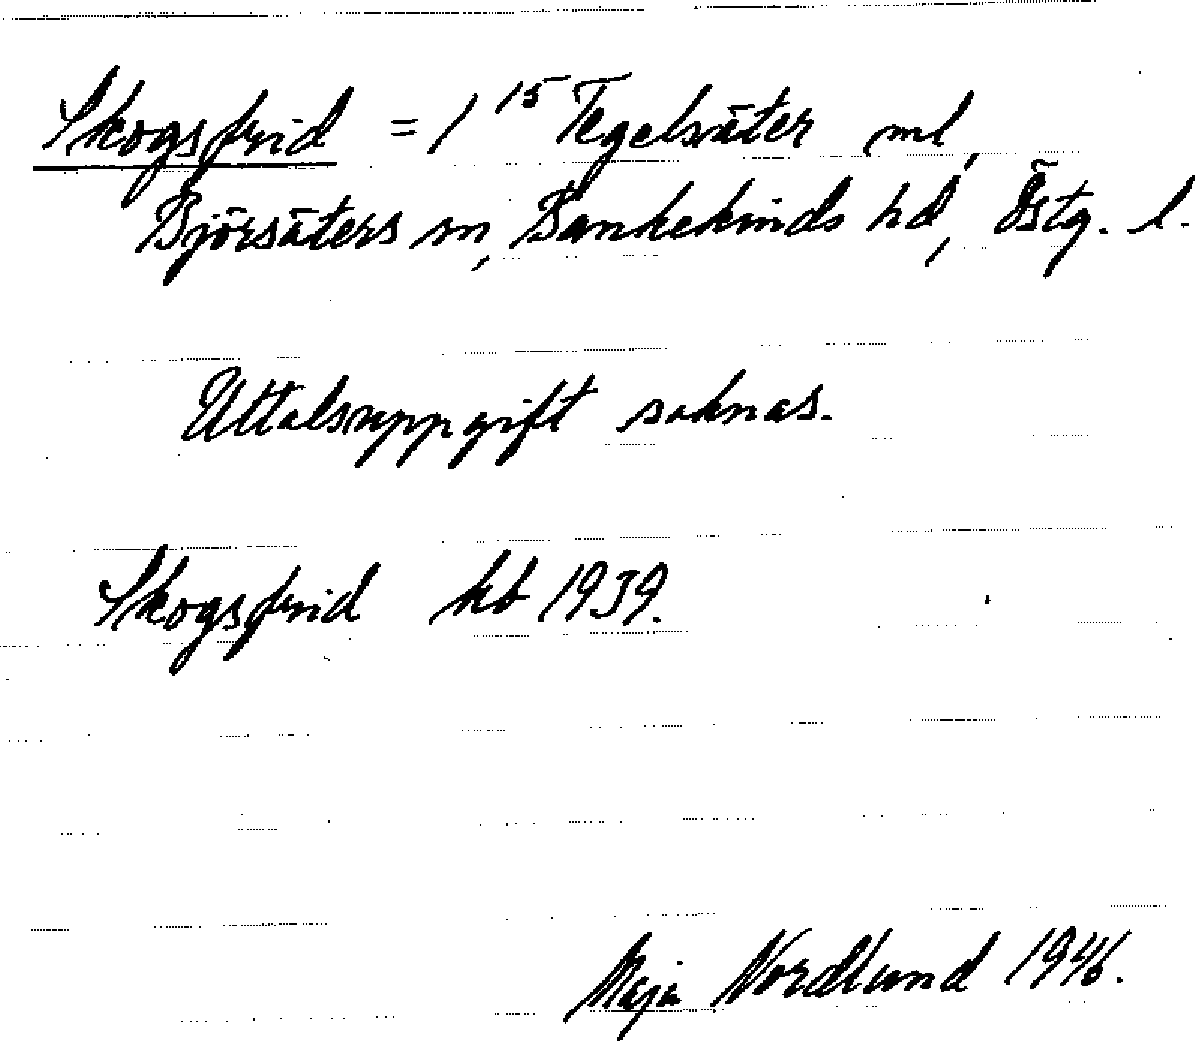 Skogsfrid = 1¹⁵ Tegelsäter ml,
Björsäters sn, Bankekinds hd, Östg. l.
Uttalsuppgift saknas.
Skogsfrid kb 1939.
Maja Nordlund 1946.